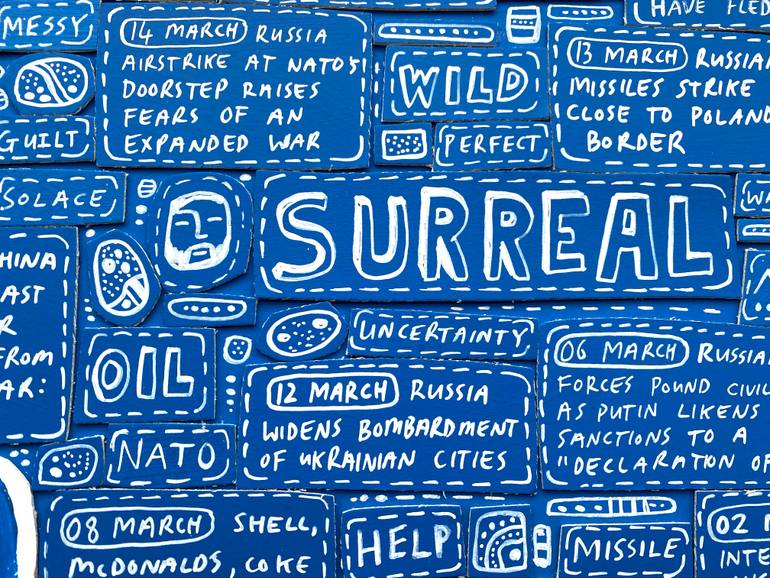 MESSY
14 MARCH RUSSIA
AIRSTRIKE AT NATO'S
DOORSTEP RAISES
FEARS OF AN
EXPANDED WAR
WILD
PERFECT
HAVE FLED
13 MARCH RUSSIAN
MISSILES STRIKE
CLOSE TO POLAND
BORDER
GUILT
SOLACE
SURREAL
FROM
OIL
UNCERTAINTY
12 MARCH RUSSIA
WIDENS BOMBARDMENT
OF UKRAINIAN CITIES
06 MARCH RUSSIA
FORCES POUND
AS PUTIN LIKENS
SANCTIONS TO A
"DECLARATION OF
NATO
08 MARCH SHELL,
McDONALDS, COKE
HELP
MISSILE